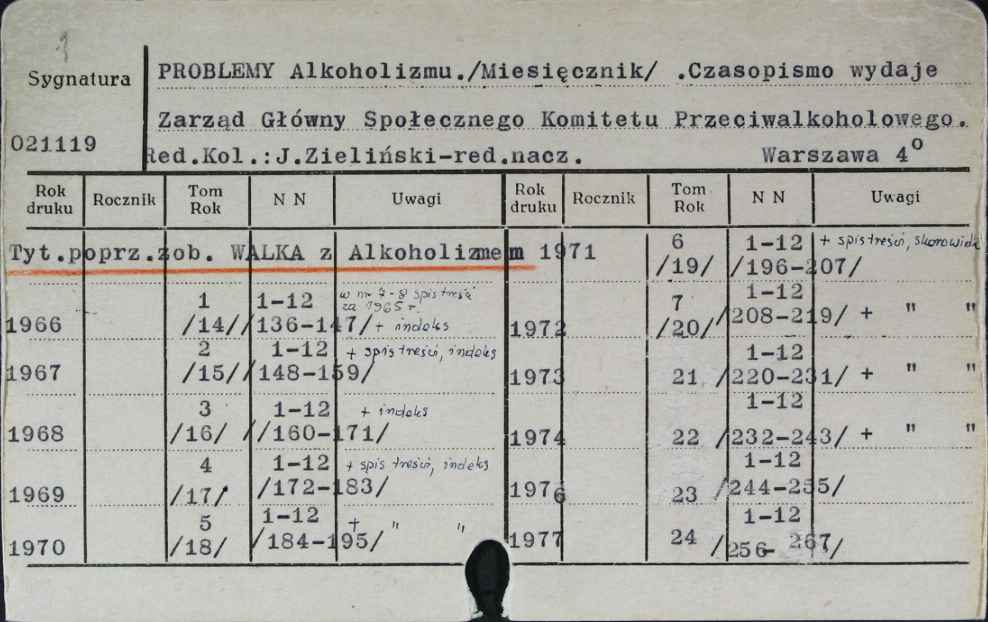 Sygnatura
021119
PROBLEMY Alkoholizmu./Miesięcznik/ .Czasopismo wydaje
Zarząd Główny Społecznego Komitetu Przeciwalkoholowego.
Red.Kol.:J.Zieliński-red.nacz. Warszawa 4º
Rok druku Rocznik Tom Rok N N Uwagi Rok druku Rocznik Tom Rok N N Uwagi
Tyt.poprz.zob. WALKA z Alkoholizmem
1966 1 /14/ 1-12 /136-147/ w nr 7-8 spis treści za 1965 r. + indeks
1967 2 /15/ 1-12 /148-159/ + spis treści, indeks
1968 3 /16/ 1-12 //160-171/ + indeks
1969 4 /17/ 1-12 /172-183/ + spis treści, indeks
1970 5 /18/ 1-12 /184-195/ + " "
1971 6 /19/ 1-12 /196-207/ + spis treści, skorowidz
1972 7 /20/ 1-12 /208-219/ + " "
1973 21 1-12 /220-231/ + " "
1974 22 1-12 /232-243/ + " "
1976 23 1-12 /244-255/
1977 24 1-12 /256-267/